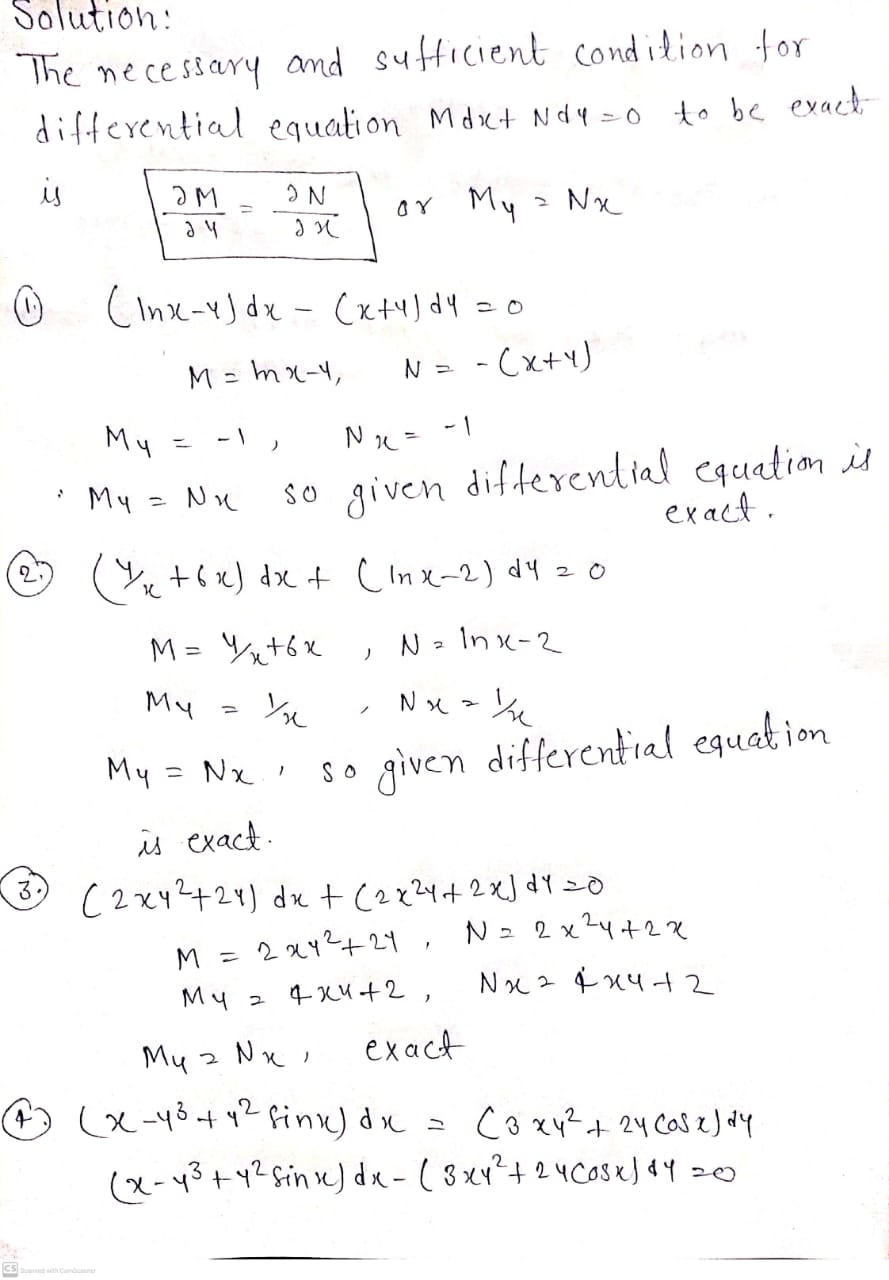 Solution:
The necessary and sufficient condition for
differential equation Mdx + Ndy = 0 to be exact
is ∂M/∂y = ∂N/∂x or My = Nx
1. (lnx-y)dx - (x+y)dy = 0
M = lnx-y, N = -(x+y)
My = -1, Nx = -1
∵ My = Nx so given differential equation is
exact.
2. (y/x + 6x) dx + (lnx-2) dy = 0
M = y/x+6x , N = lnx-2
My = 1/x , Nx = 1/x
My = Nx , so given differential equation
is exact.
3. (2xy²+2y) dx + (2x²y+2x) dy = 0
M = 2xy²+2y , N = 2x²y+2x
My = 4xy+2 , Nx = 4xy+2
My = Nx , exact
4. (x-y³+y² sinx) dx = (3xy²+2y cosx) dy
(x-y³+y² sinx) dx - (3xy²+2y cosx) dy = 0
CS Scanned with CamScanner